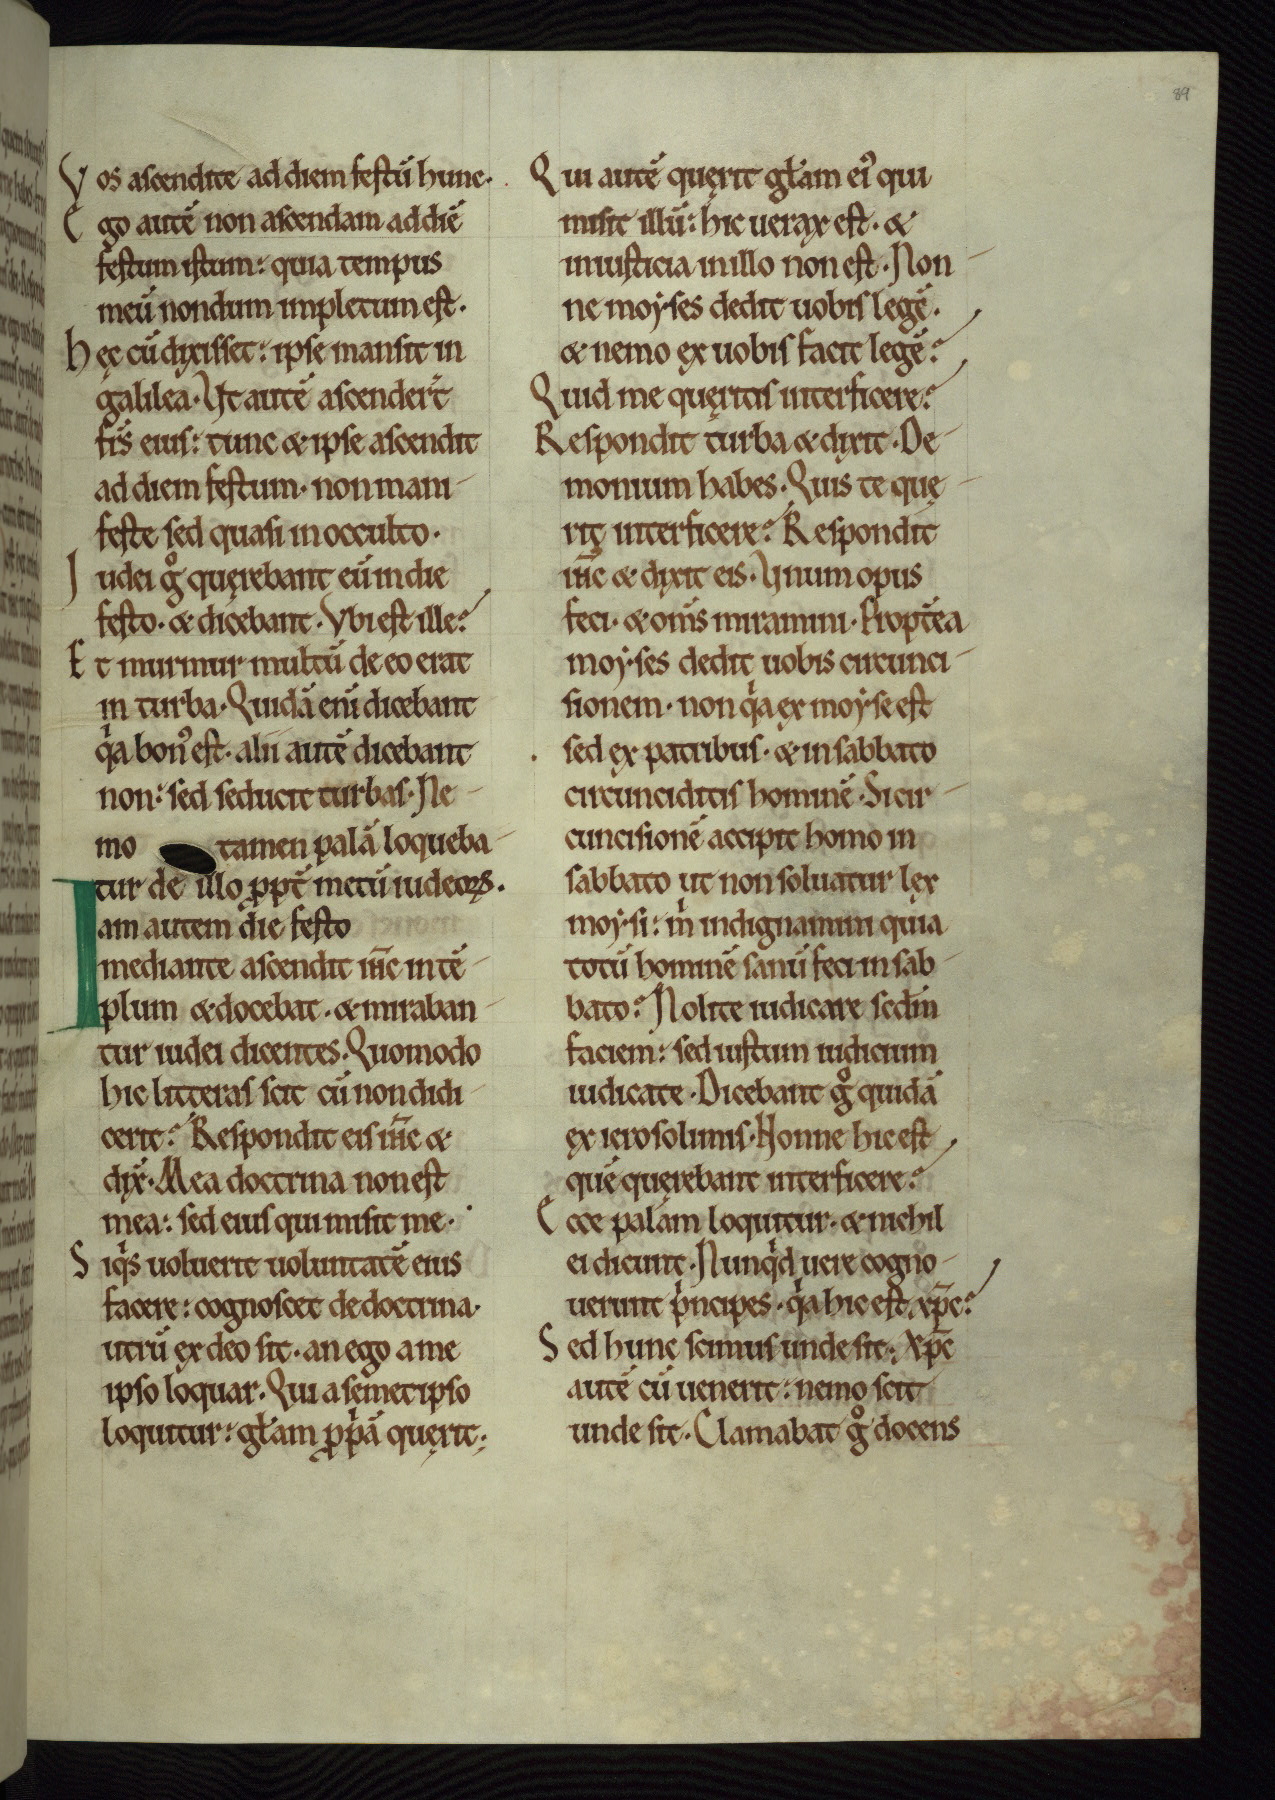 89
Vos ascendite ad diem festū hunc.
Ego autē non ascendam ad diē
festum istum: quia tempus
meū nondum impletum est.
Hęc cū dixisset: ipse mansit in
galilea. Ut autē ascenderт̄
fr̄s eius: tunc & ipse ascendit
ad diem festum. non mani-
feste sed quasi in occulto.
Iudei gͦ quęrebant eū in die
festo. & dicebant. Vbi est ille?
Et murmur multū de eo erat
in turba. Quidā eni̅ dicebant
qͥa bonꝰ est. alii autē dicebant
non: sed seducit turbas. Ne-
mo tamen palā loqueba-
tur de illo ꝓpt̄ metū iudeoꝝ.
Iam autem die festo
mediante ascendit ih̅c in tē-
plum & docebat. & miraban-
tur iudei dicentes. Quomodo
hic litteras scit cū non didi-
cerit? Respondit eis ih̅c &
dix̄. Mea doctrina non est
mea: sed eius qui misit me.
Siqͥs uoluerit uoluntatē eius
facere: cognoscet de doctrina.
utrū ex deo sit. an ego a me
ipso loquar. Qui a semetipso
loquitur: gl̄am ꝓpͥā quęrit;
Qui autē quęrit gl̄am eiꝰ qui
misit illū: hic uerax est. &
iniusticia in illo non est. Non-
ne moẏses dedit uobis legē.
& nemo ex uobis facit legē?
Quid me quęritis interficere?
Respondit turba & dixit. De-
monium habes. Quis te quę-
rit interficere? Respondit
ih̅c & dixit eis. Unum opus
feci. & om̅s miramini. Propt̄ea
moẏses dedit uobis circunci-
sionem. non qͥa ex moẏse est
sed ex patribus. & in sabbato
circunciditis hominē. Si cir-
cuncisionē accipit homo in
sabbato ut non soluatur lex
moẏsi: mͥ indignamini quia
totū hominē sanū feci in sab-
bato? Nolite iudicare sedm̅
faciem: sed iustum iudicium
iudicate. Dicebant gͦ quidā
ex ierosolimis. Nonne hic est
quē quęrebant interficere?
Ecce palam loquitur. & nichil
ei dicunt. Nunqͥd uere cogno-
uerunt pͥncipes. qͥa hic est xp̅c?
Sed hunc scimus unde sit; Xp̅c
autē cū uenerit: nemo scit
unde sit. Clamabat gͦ docens